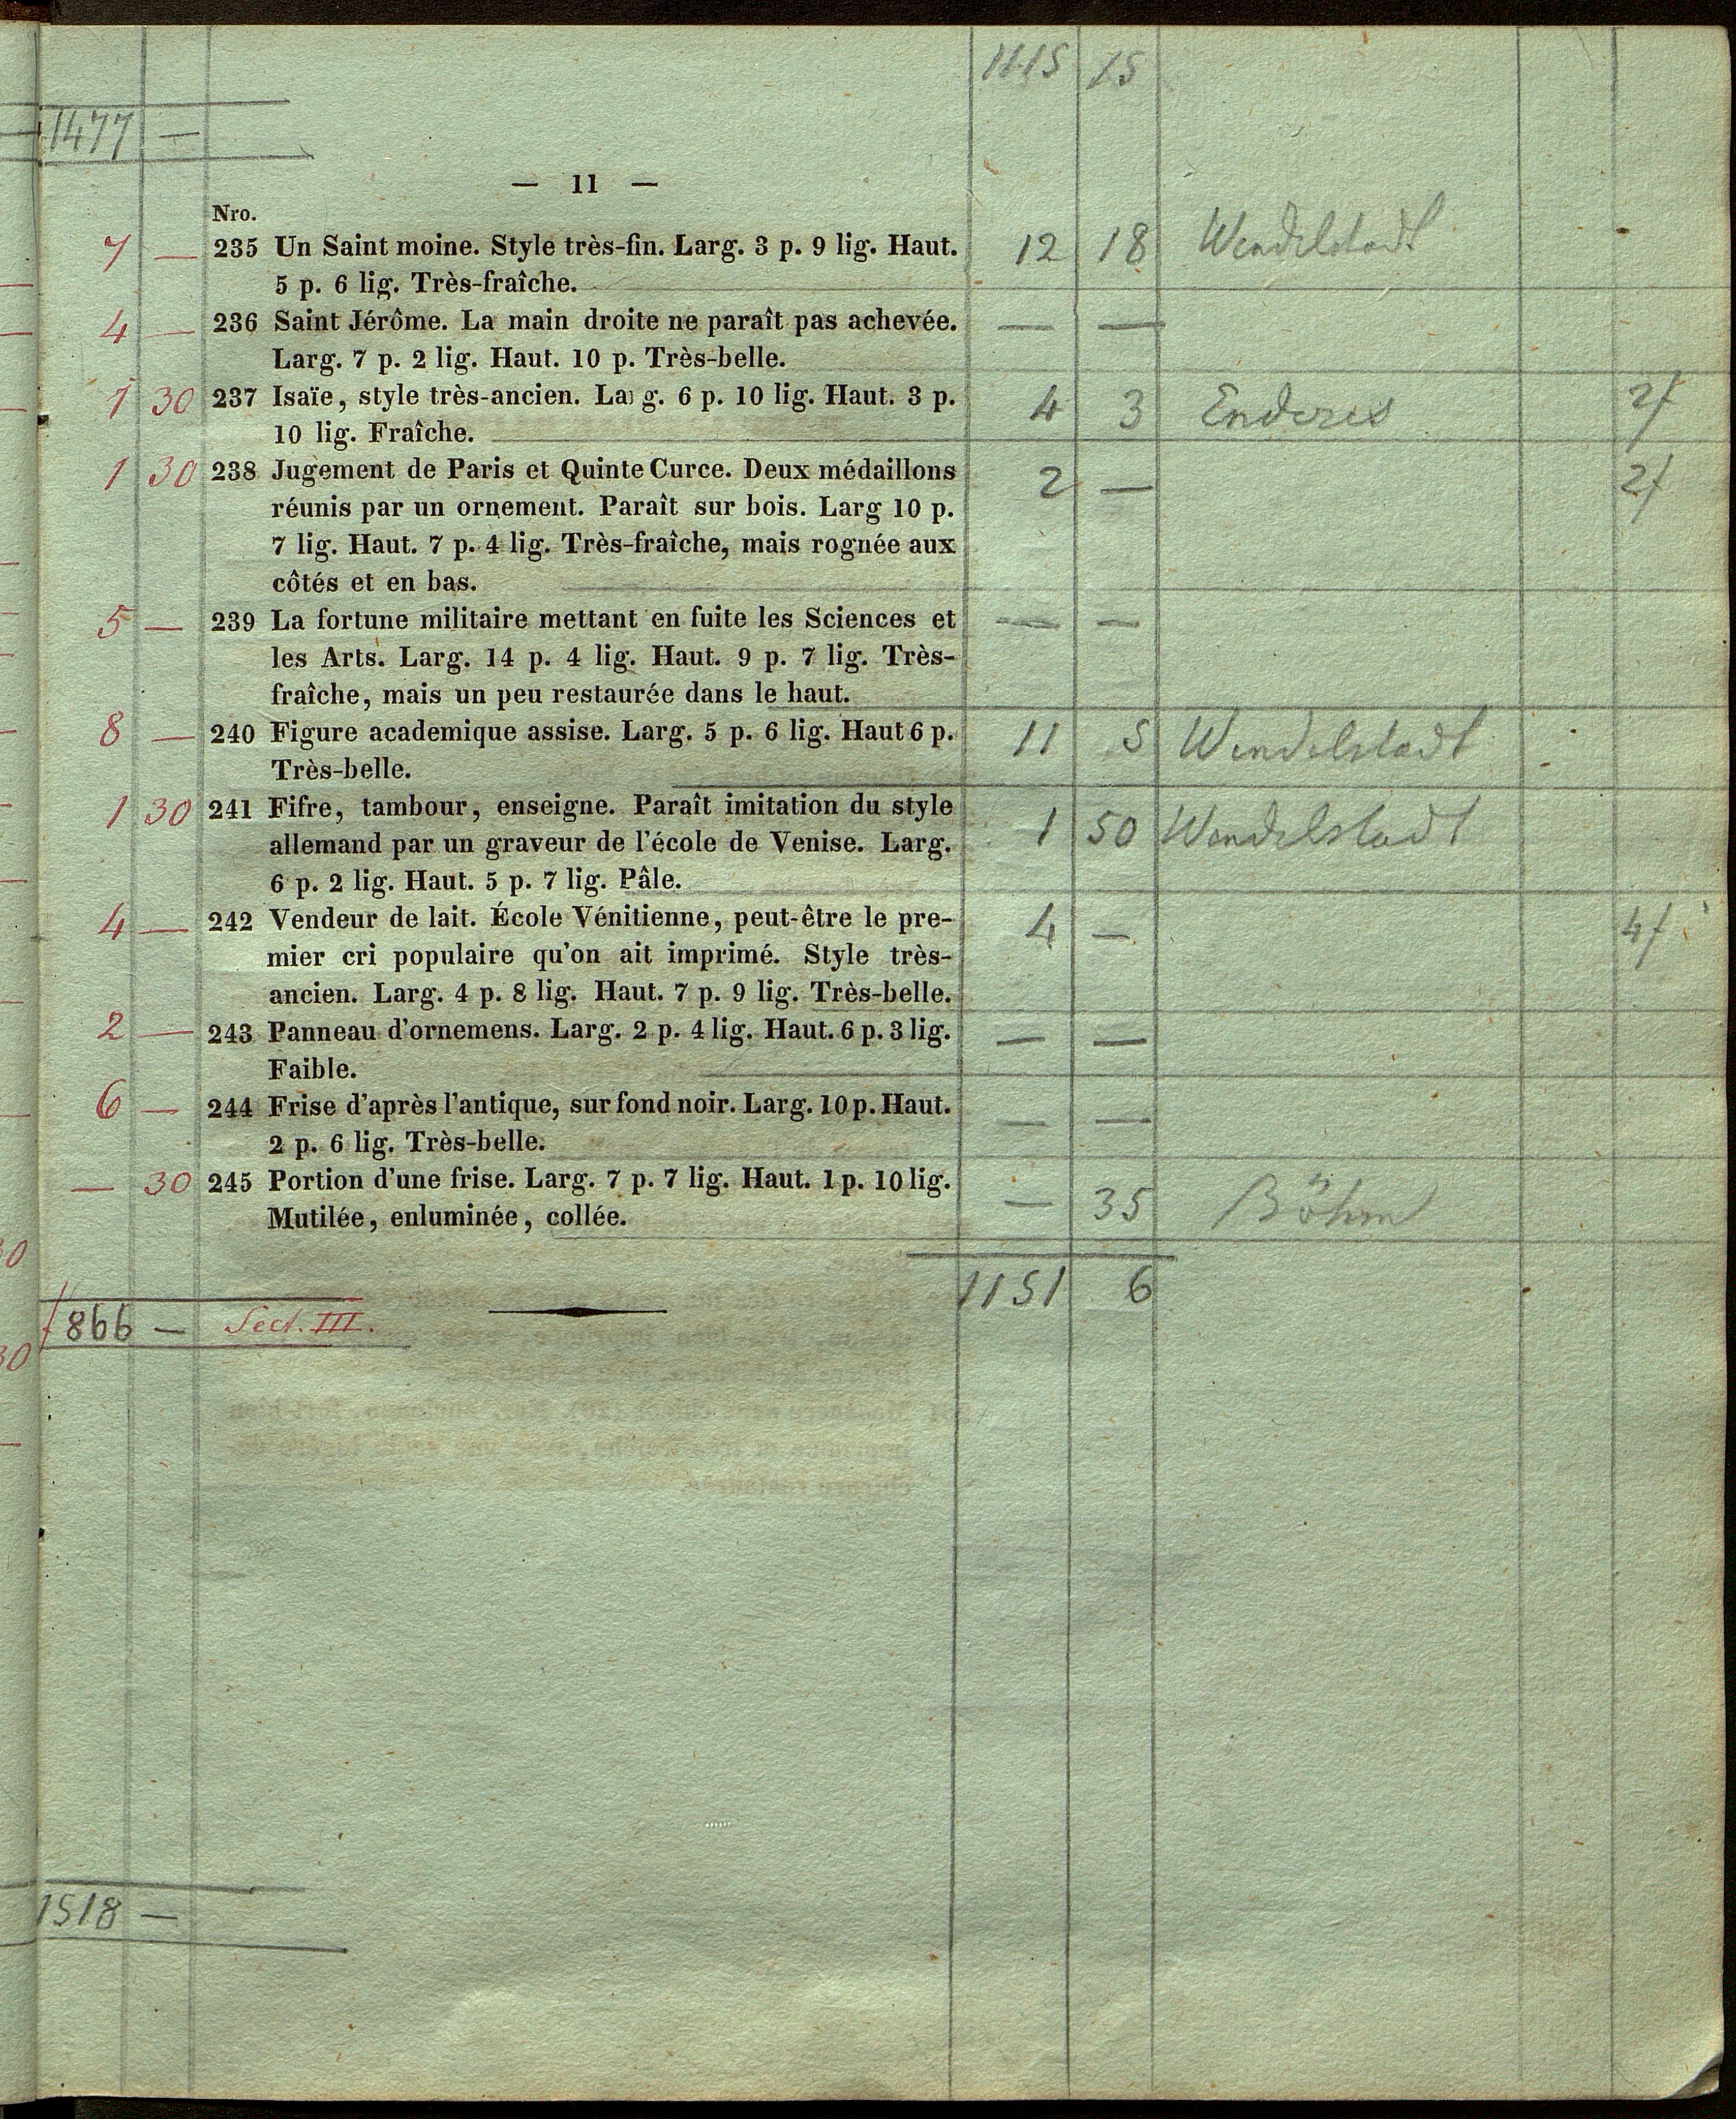 1115 15
1477 —
— 11 —
Nro.
7 — 235 Un Saint moine. Style très-fin. Larg. 3 p. 9 lig. Haut. 12 18 Wendelstadt
5 p. 6 lig. Très-fraîche.
4 — 236 Saint Jérôme. La main droite ne paraît pas achevée. — —
Larg. 7 p. 2 lig. Haut. 10 p. Très-belle.
1 30 237 Isaïe, style très-ancien. Larg. 6 p. 10 lig. Haut. 3 p. 4 3 Enderes 2f
10 lig. Fraîche.
1 30 238 Jugement de Paris et Quinte Curce. Deux médaillons 2 — 2f
réunis par un ornement. Paraît sur bois. Larg 10 p.
7 lig. Haut. 7 p. 4 lig. Très-fraîche, mais rognée aux
côtés et en bas.
5 — 239 La fortune militaire mettant en fuite les Sciences et — —
les Arts. Larg. 14 p. 4 lig. Haut. 9 p. 7 lig. Très-
fraîche, mais un peu restaurée dans le haut.
8 — 240 Figure academique assise. Larg. 5 p. 6 lig. Haut 6 p. 11 5 Wendelstadt
Très-belle.
1 30 241 Fifre, tambour, enseigne. Paraît imitation du style 1 50 Wendelstadt
allemand par un graveur de l'école de Venise. Larg.
6 p. 2 lig. Haut. 5 p. 7 lig. Pâle.
4 — 242 Vendeur de lait. École Vénitienne, peut-être le pre- 4 — 4f
mier cri populaire qu'on ait imprimé. Style très-
ancien. Larg. 4 p. 8 lig. Haut. 7 p. 9 lig. Très-belle.
2 — 243 Panneau d'ornemens. Larg. 2 p. 4 lig. Haut. 6 p. 3 lig. — —
Faible.
6 — 244 Frise d'après l'antique, sur fond noir. Larg. 10 p. Haut. — —
2 p. 6 lig. Très-belle.
— 30 245 Portion d'une frise. Larg. 7 p. 7 lig. Haut. 1 p. 10 lig. — 35 Böhm
Mutilée, enluminée, collée.
1151 6
f 866 — Sect. III.
1518 —